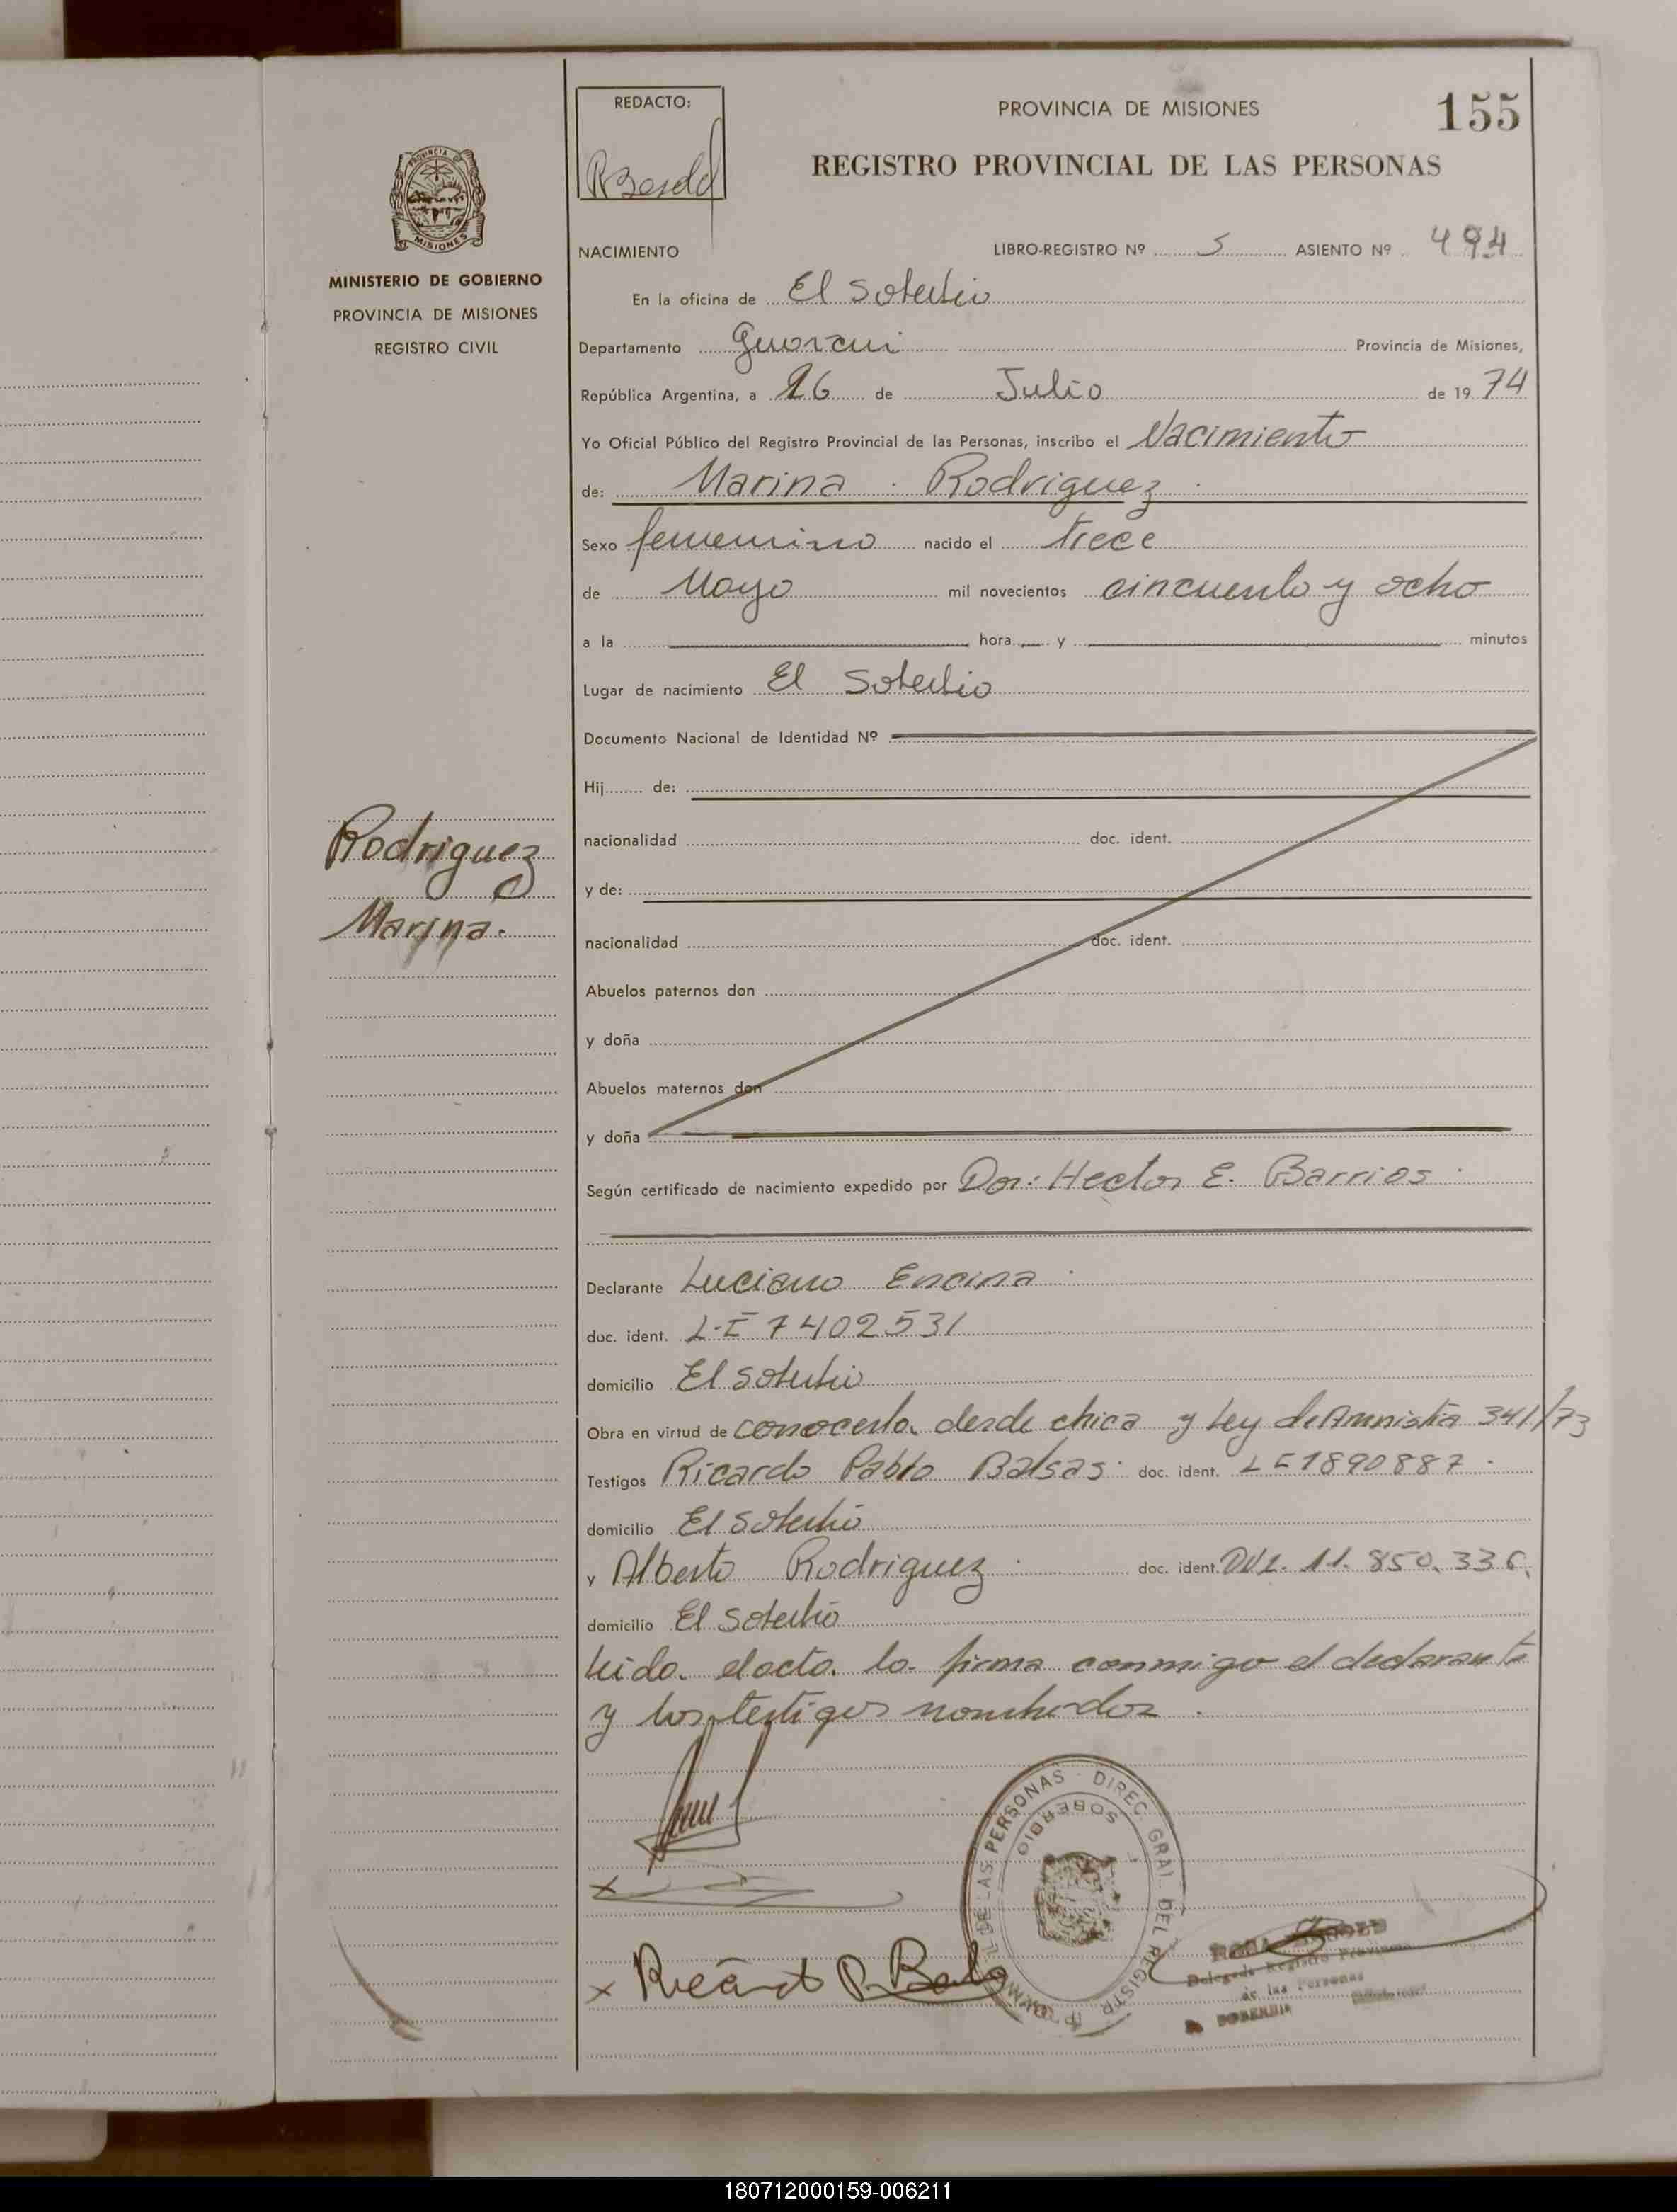 REDACTO:
PROVINCIA DE MISIONES
155
REGISTRO PROVINCIAL DE LAS PERSONAS
PROVINCIA
MISIONES
MINISTERIO DE GOBIERNO
PROVINCIA DE MISIONES
REGISTRO CIVIL
NACIMIENTO LIBRO-REGISTRO Nº 5 ASIENTO Nº 494
En la oficina de El Soberbio
Departamento Guarani Provincia de Misiones,
República Argentina, a 16 de Julio de 1974
Yo Oficial Público del Registro Provincial de las Personas, inscribo el Nacimiento
de: Marina Rodriguez
Sexo femenino nacido el trece
de Mayo mil novecientos cincuenta y ocho
a la hora y minutos
Lugar de nacimiento El Soberbio
Documento Nacional de Identidad Nº
Hij de:
nacionalidad doc. ident.
y de:
nacionalidad doc. ident.
Abuelos paternos don
y doña
Abuelos maternos don
y doña
Rodriguez
Marina.
Según certificado de nacimiento expedido por Dor: Hector E. Barrios
Declarante Luciano Encina
doc. ident. L.E 7402531
domicilio El Soberbio
Obra en virtud de conocerla desde chica y Ley de Amnistia 341/73
Testigos Ricardo Pablo Balsas doc. ident. LE 1890887
domicilio El Soberbio
y Alberto Rodriguez doc. ident. DNI. 11.850.336
domicilio El Soberbio
Leida el acta la firma conmigo el declarante
y los testigos nombrados
DE LAS PERSONAS DIREC. GRAL. DEL REGISTR
SOBERBIO
Ricardo P. Balsa
Delegado Registro Provincial
de las Personas
SOBERBIO
180712000159-006211